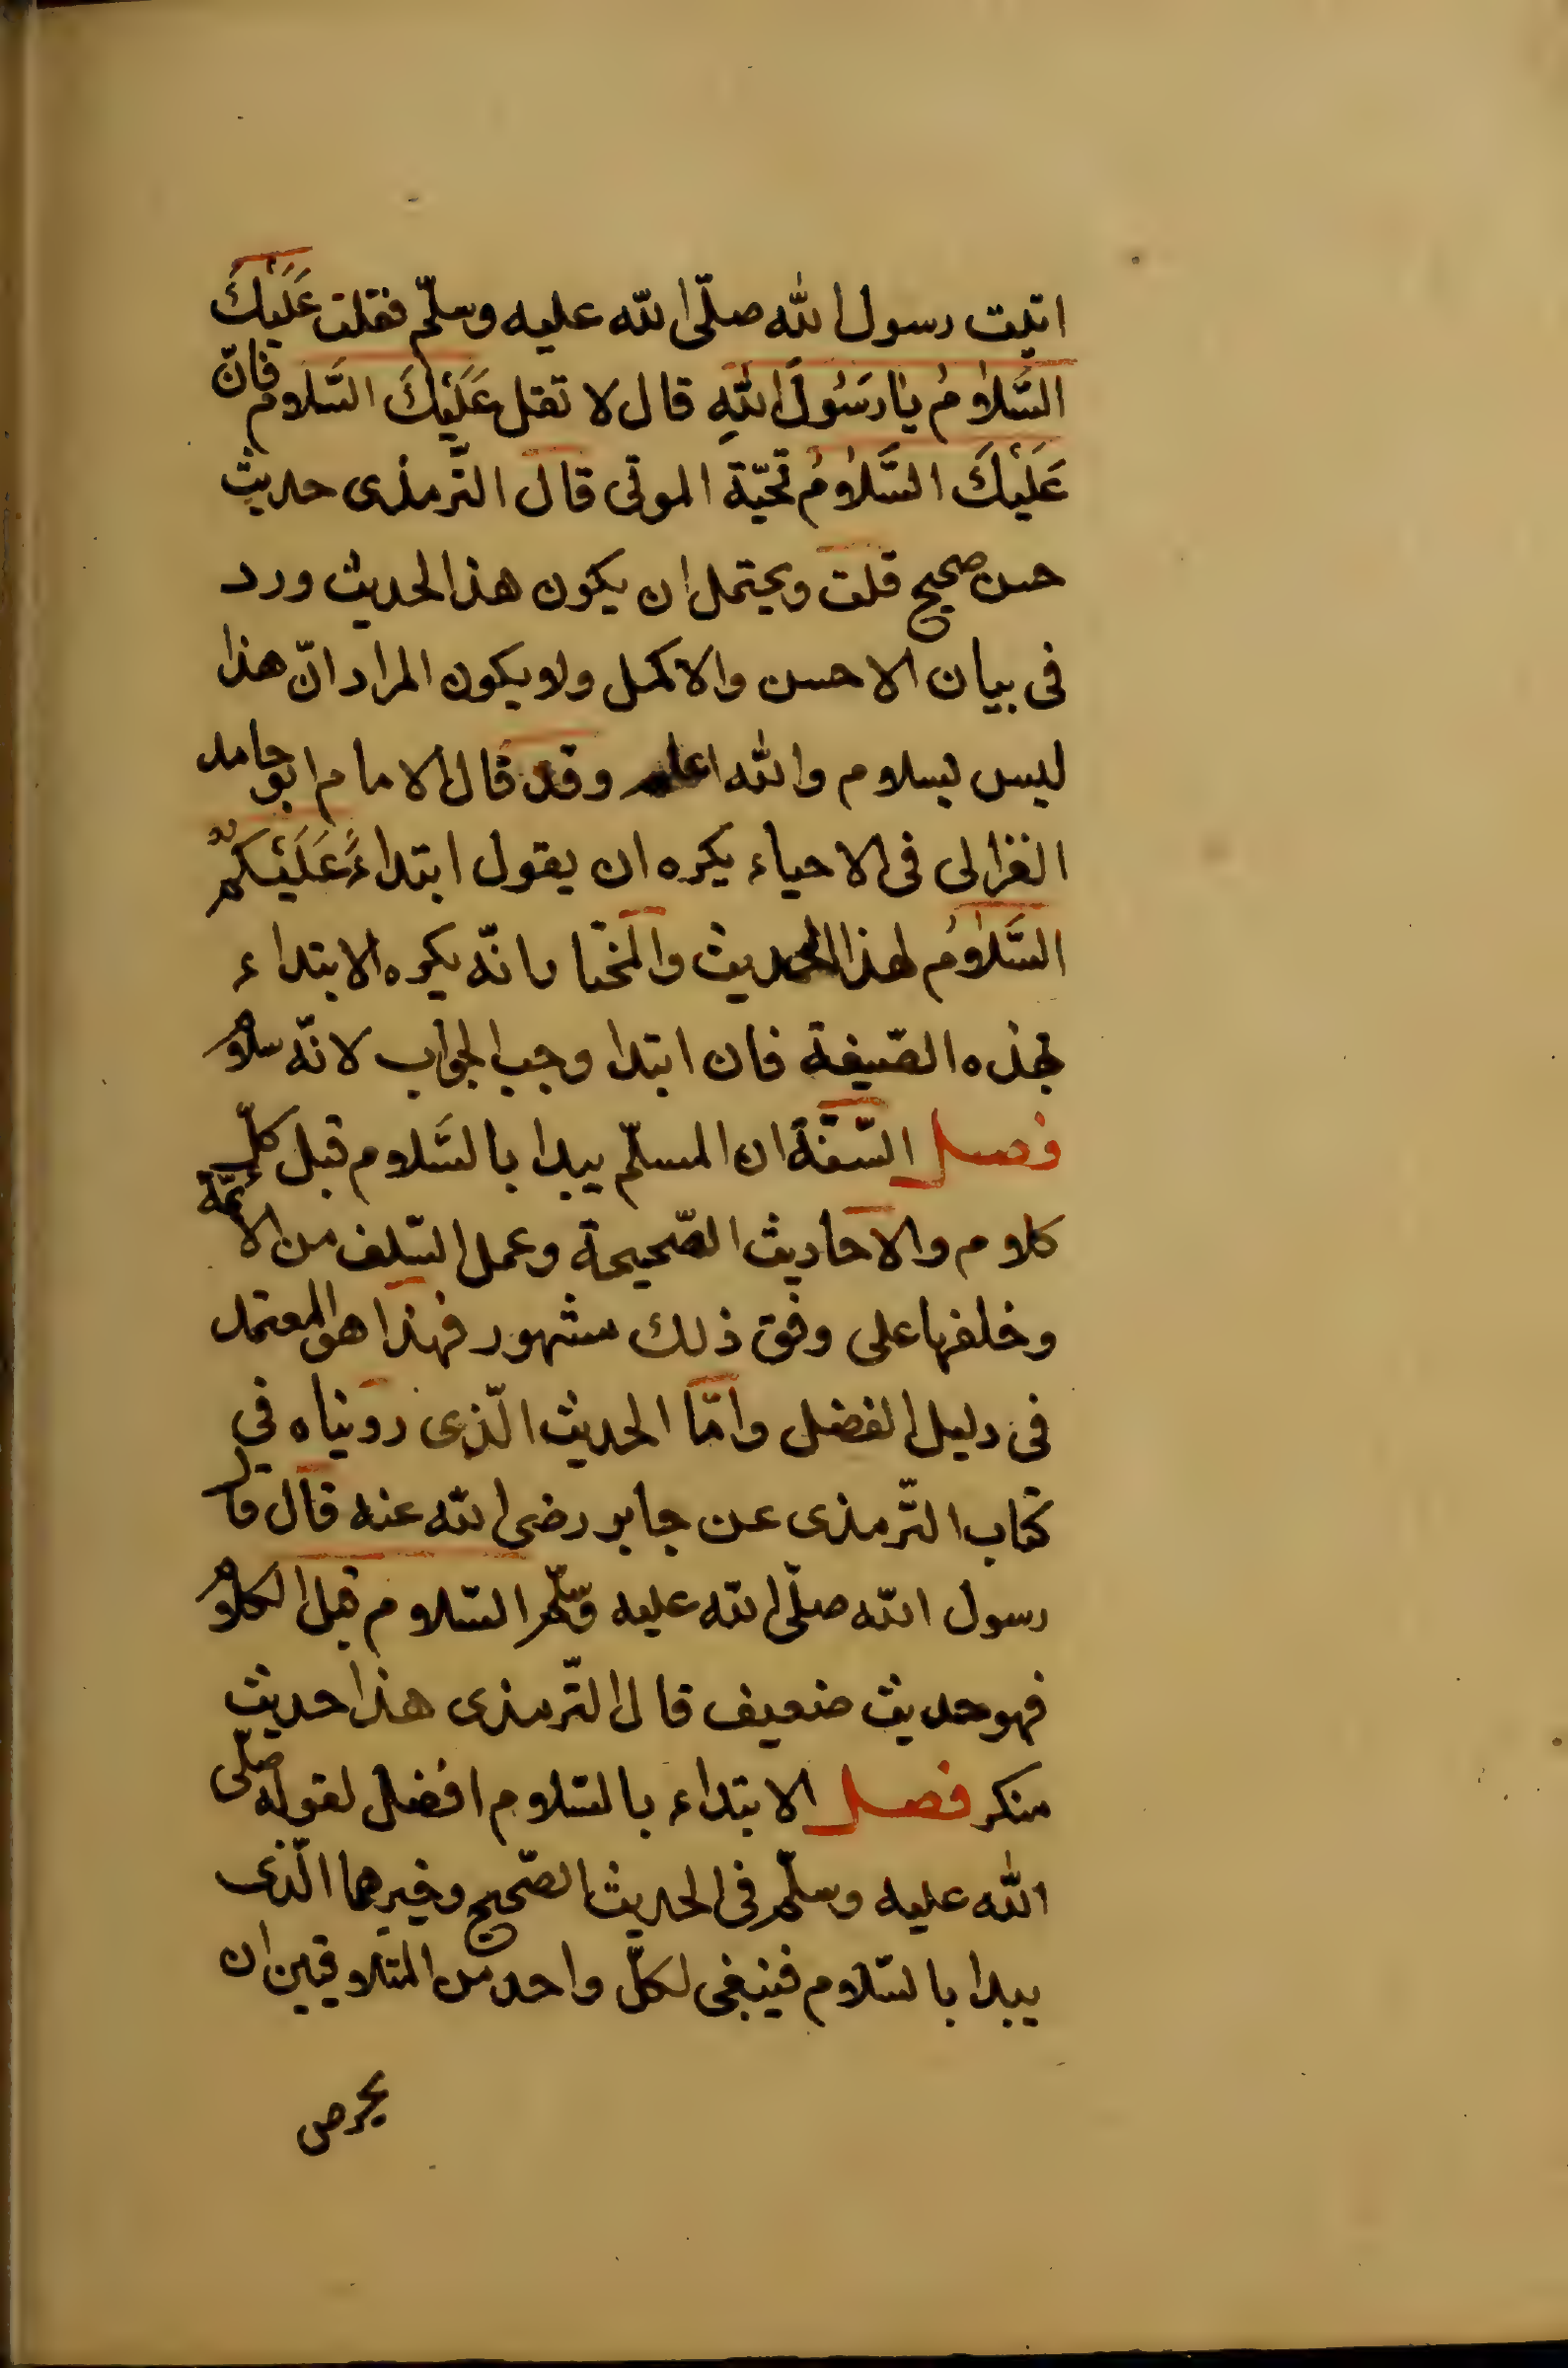 اتيت رسول الله صلّى الله عليه وسلّم فقلت عَلَيْكَ
السَّلَامُ يَا رَسُولَ اللهِ قال لا تقل عَلَيْكَ السَّلَام فانّ
عَلَيْكَ السَّلَامُ تحيّة الموتى قال التّرمذى حديث
حسن صحيح قلت ويحتمل ان يكون هذا الحديث ورد
فى بيان الاحسن والاكمل ولا يكون المراد انّ هذا
ليس بسلام والله اعلم وقد قال الامام ابو حامد
الغزالى فى الاحياء يكره ان يقول ابتداءً عَلَيْكُمُ
السَّلَامُ لهذا الحديث والمختار انّه يكره الابتداء
بهذه الصّيغة فان ابتدا وجب الجواب لانّه سلام
فصل السّنّة ان المسلّم يبدا بالسَّلام قبل كلّ
كلام والاحاديث الصّحيحة وعمل السّلف من الائمّة
وخلفها على وفق ذلك مشهور فهذا هو المعتمد
فى دليل الفضل وامّا الحديث الّذى روّيناه في
كتاب التّرمذى عن جابر رضى الله عنه قال قال
رسول الله صلّى الله عليه وسلّم السّلام قبل الكلام
فهو حديث ضعيف قال التّرمذى هذا حديث
منكر فصل الابتداء بالسّلام افضل لقوله صلّى
الله عليه وسلّم فى الحديث الصّحيح وخيرهما الّذى
يبدا بالسّلام فينبغى لكلّ واحد من المتلاقيين ان
يحرص